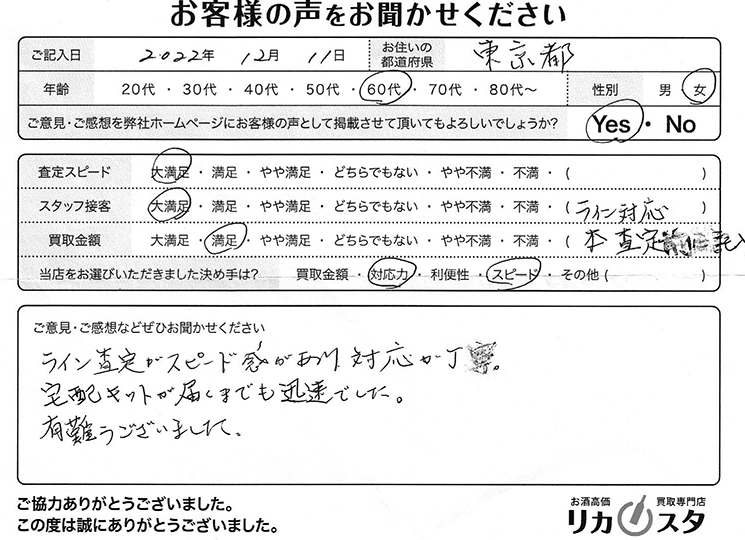 お客様の声をお聞かせください
ご記入日 2022年 12月 11日 お住いの都道府県 東京都
年齢 20代 ・ 30代 ・ 40代 ・ 50代 ・ 60代 ・ 70代 ・ 80代～ 性別 男 ・ 女
ご意見・ご感想を弊社ホームページにお客様の声として掲載させて頂いてもよろしいでしょうか? Yes ・ No
査定スピード 大満足 ・ 満足 ・ やや満足 ・ どちらでもない ・ やや不満 ・ 不満 ・ ( )
スタッフ接客 大満足 ・ 満足 ・ やや満足 ・ どちらでもない ・ やや不満 ・ 不満 ・ ( ライン対応 )
買取金額 大満足 ・ 満足 ・ やや満足 ・ どちらでもない ・ やや不満 ・ 不満 ・ ( 本査定前に記入
当店をお選びいただきました決め手は? 買取金額 ・ 対応力 ・ 利便性 ・ スピード ・ その他 ( )
ご意見・ご感想などぜひお聞かせください
ライン査定がスピード感があり 対応が丁寧。
宅配キットが届くまでも迅速でした。
有難うございました。
ご協力ありがとうございました。
この度は誠にありがとうございました。
お酒高価 買取専門店
リカスタ